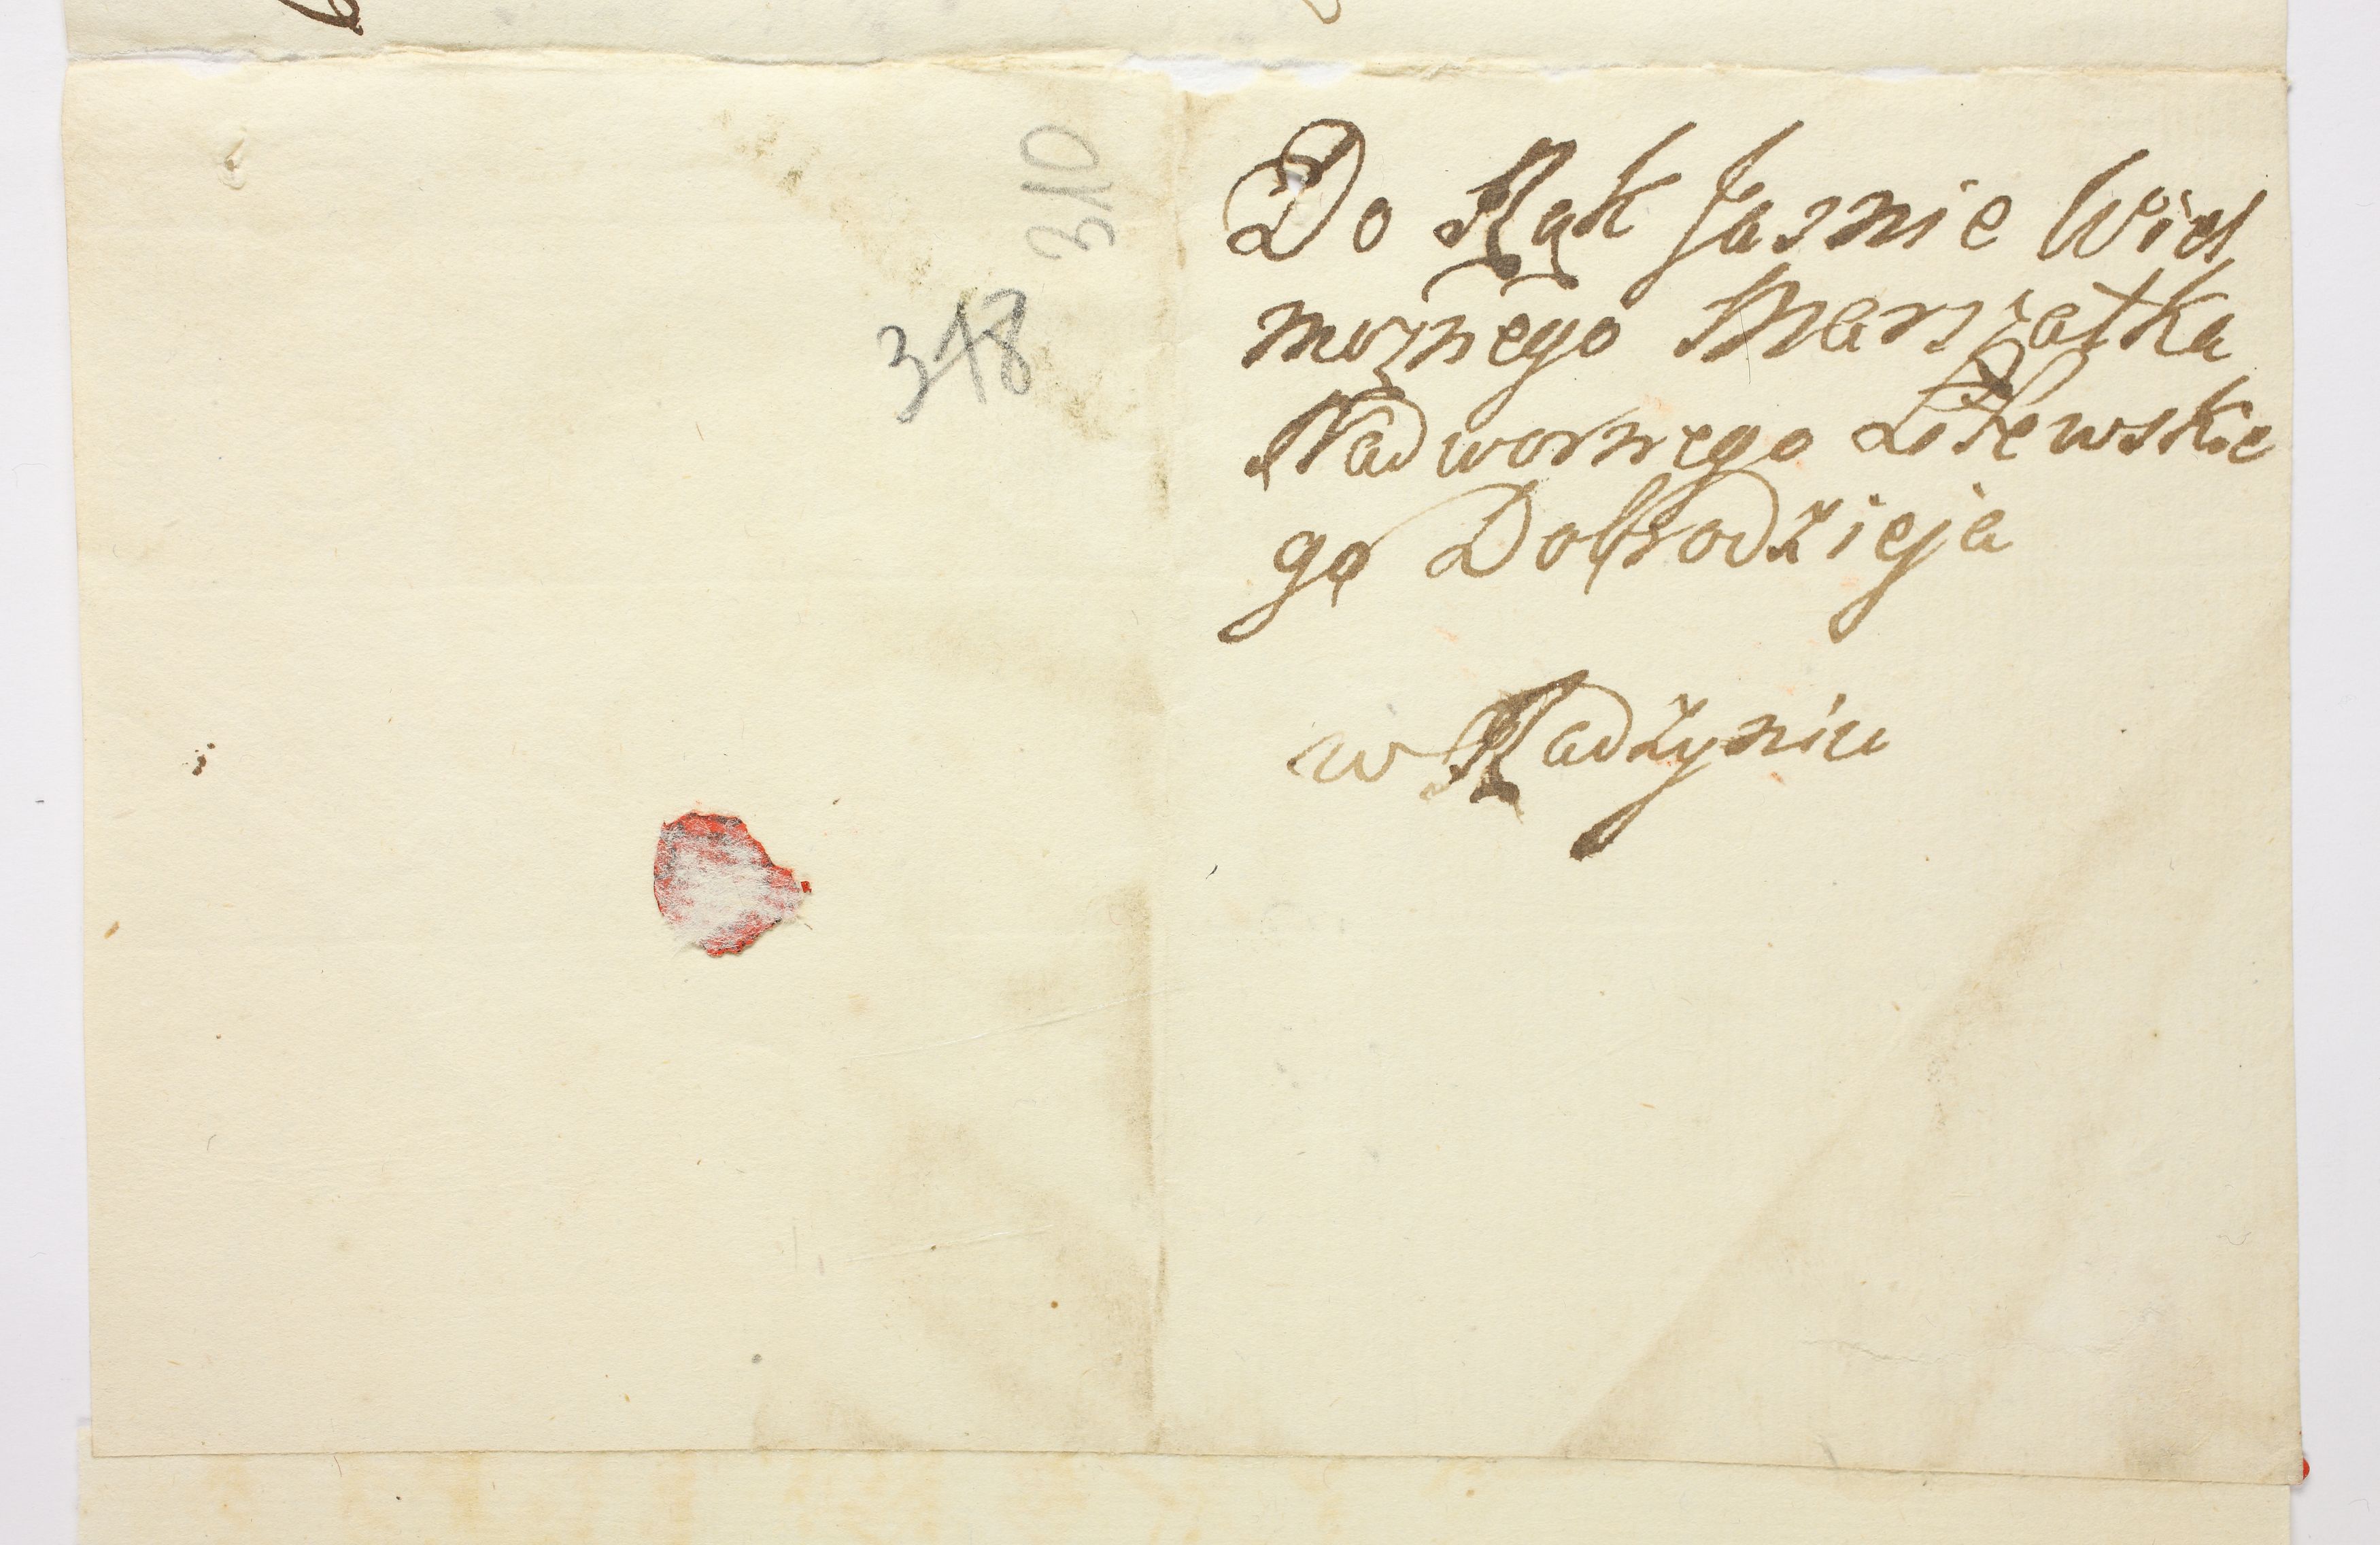 310
318
Do Rąk Jasnie Wiel
moznego Marszałka
Nadwornego Litewskie
go Dobrodzieja
w Radzyniu